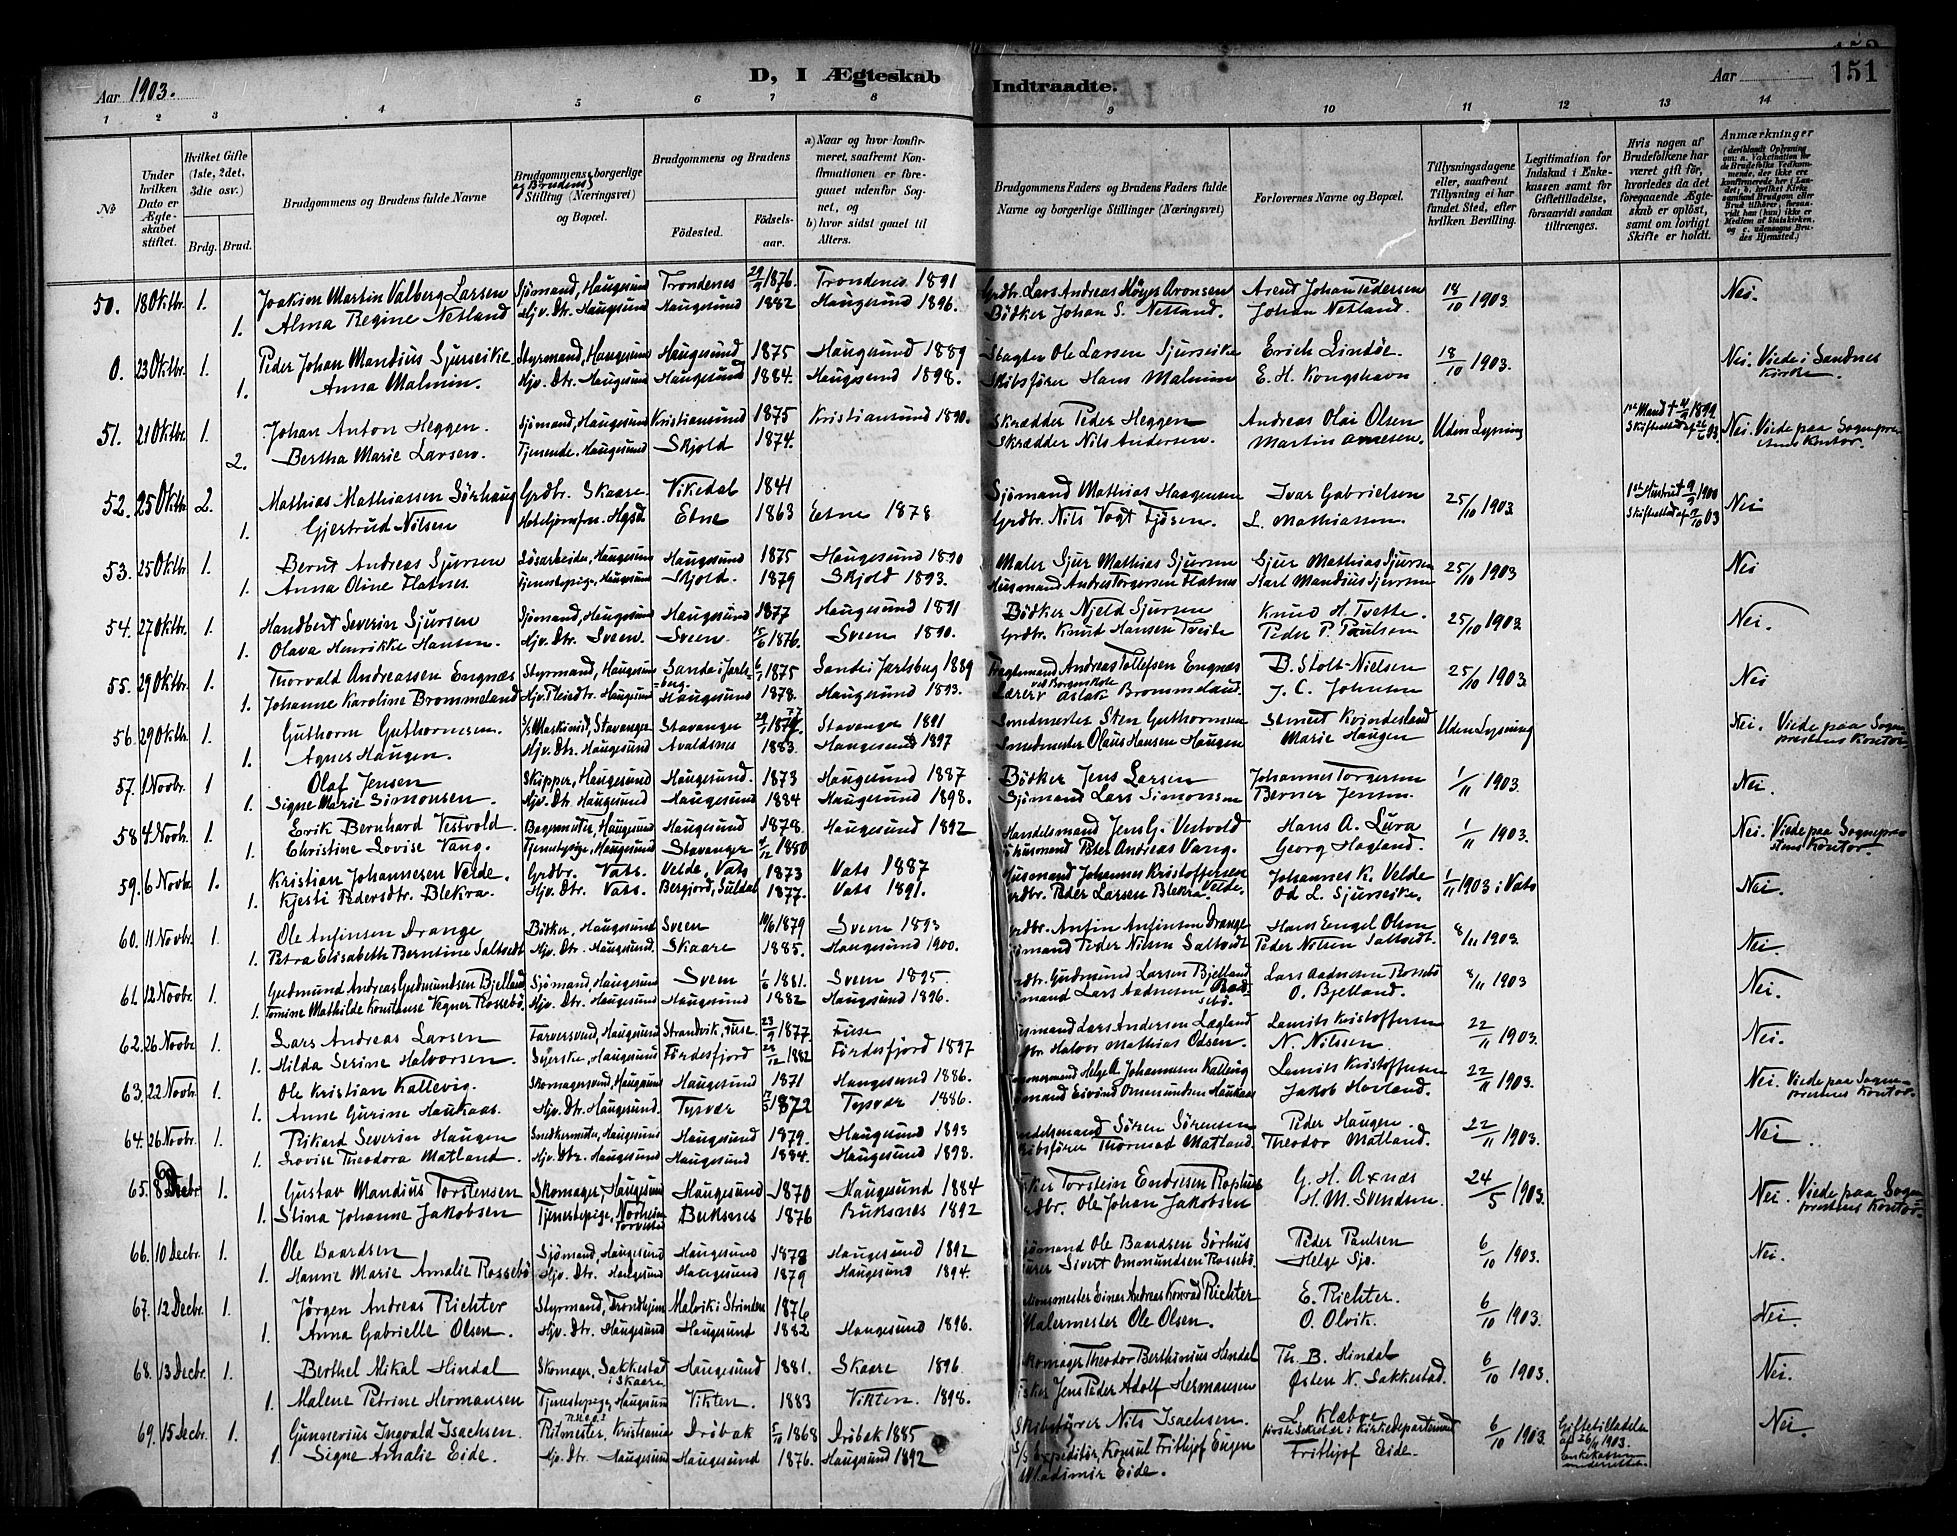 Aar 1903.
D, I Ægteskab
Indtraadte.
Aar
151
1 2 3 4 5 6 7 8 9 10 11 12 13 14
No
Under hvilken Dato er Ægteskabet stiftet.
Hvilket Gifte (1ste, 2det, 3die osv.)
Brdg. Brud.
Brudgommens og Brudens fulde Navne
Brudgommens og Brudens borgerlige Stilling (Næringsvei) og Bopæl.
Brudgommens og Brudens
Fødested.
Fødselsaar.
a) Naar og hvor konfirmeret, saafremt Konfirmationen er foregaaet udenfor Sognet, og
b) hvor sidst gaaet til Alters.
Brudgommens Faders og Brudens Faders fulde Navne og borgerlige Stillinger (Næringsvei)
Forlovernes Navne og Bopæl.
Tillysningsdagene eller, saafremt Tillysning ei har fundet Sted, efter hvilken Bevilling.
Legitimation for Indskud i Enkekassen samt for Giftetilladelse, forsaavidt saadan tiltrænges.
Hvis nogen af Brudefolkene har været gift før, hvorledes da det foregaaende Ægteskab er opløst, samt om lovligt Skifte er holdt.
Anmærkninger
(deriblandt Oplysning om: a. Vakcination for de Brudefolks Vedkommende, der ikke ere konfirmerede her i Landet; b. hvilket Kirkesamfund Brudgom eller Brud tilhører, forsaavidt han (hun) ikke er Medlem af Statskirken, og c. udensogns Brudes Hjemsted.)
50. 18 Oktbr. 1. Joakim Martin Valberg Larsen Sjømand, Haugesund Trondenes 1876. Trondenes 1891 Grdbr. Lars Andreas Høyer Aronsen Arent Johan Pedersen 18/10 1903. Nei.
1. Alma Regine Netland Hjv. Dtr. Haugesund Haugesund 1882 Haugesund 1896. Bødker Johan S. Netland. Johan Netland.
0. 23 Oktbr. 1. Peder Johan Mandius Sjurseike Styrmand, Haugesund Haugesund 1875 Haugesund 1889 Ole Larsen Sjurseike Erich Lindøe. 18/10 1903. Nei. Viede i Sandnes Kirke.
1. Anna Malmin. Hjv. Dtr. Haugesund Haugesund 1884. Haugesund 1898. Skibsfører Hans Malmin E. H. Kongshavn
51. 21 Oktbr. 1. Johan Anton Heggen. Sjømand, Haugesund Kristiansund 1875 Kristiansund 1890. Skrædder Peder Heggen Andreas Olai Olsen Uden Lysning 1ste Mand † 1899 Nei. Viede paa Sogneprestens Kontor.
2. Bertha Marie Larsen. Tjenende. Haugesund Skjold 1874. Skrædder Nils Andersen. Martin Arnesen.
52. 25 Oktbr. 2. Mathias Mathiassen Sørhaug Grdbr. Skaare. Vikedal 1841 Sjømand Mathias Haagensen Ivar Gabrielsen 25/10 1903 1ste Hustru † 9/9 1900 Nei
1. Gjertrud Nilsen Etne 1863 Etne 1878 Grdbr. Nils Vogt Fjøsen. L. Mathiassen
53. 25 Oktbr. 1. Bernt Andreas Sjursen Løsarbeider, Haugesund Haugesund 1875 Haugesund 1890 Maler Sjur Mathias Sjursen Sjur Mathias Sjursen 25/10 1903 Nei
1. Anna Oline Flatnes Tjenestepige, Haugesund Skjold. 1879 Skjold 1893. Husmand Andreas Torgersen Flatnes Karl Mandius Sjursen
54. 27 Oktbr. 1. Handbert Severin Sjursen Sjømand, Haugesund Haugesund 1877 Haugesund 1891 Bødker Njeld Sjursen Knud H. Tveite. 25/10 1903 Nei.
1. Olava Henrikke Hansen. Hjv. Dtr. Sveen. Sveen. 1876. Sveen 1890. Grdbr. Knud Hansen Tveite Peder P. Paulsen
55. 29 Oktbr. 1. Thorvald Andreassen Engnæs Styrmand, Haugesund Sande i Jarlsberg 1875 Sande i Jarlsbug 1889 Andreas Tollefsen Engnæs B. Stolt-Nielsen 25/10 1903. Nei
1. Johanne Karoline Brommeland Haugesund Haugesund 1878. Haugesund 1893. Lærer ved Borgerskole Aslak Brommeland. J. C. Johnsen
56. 29 Oktbr. 1. Guthorm Guthormsen. Maskinist, Stavanger Stavanger 1877 Stavanger 1891 Smedmester Sten Guthormsen Kvindesland Uden Lysning Nei. Viede paa Sogneprestens Kontor
1. Agnes Haugen. Hjv. Dtr. Haugesund Avaldsnes 1883. Haugesund 1897 Smedmester Olaus Hansen Haugen Marie Haugen
57. 1 Novbr. 1 Olaf Jensen Skipper, Haugesund Haugesund. 1873 Haugesund 1887 Bødker Jens Larsen Johannes Torgersen 1/11 1903 Nei.
1. Signe Marie Simonsen. Hjv. Dtr. Haugesund Haugesund 1884 Haugesund 1898. Sjømand Lars Simonsen Berner Jensen.
58 4 Novbr. 1. Erik Bernhard Vestvold. Bagermester, Haugesund Haugesund 1878. Haugesund 1892 Handelsmand Jens G. Vestvold Hans A. Lura 1/11 1903. Nei. Viede paa Sogneprestens Kontor.
1. Christine Lovise Vang. Tjenestepige, Haugesund Stavanger 1880 Peter Andreas Vang. Georg Hagland.
59. 6 Novbr. 1. Kristian Johannesen Velde. Grdbr. Vats. Velde, Vats 1873 Vats 1887 Husmand Johannes Kristoffersen Velde. Johannes K. Velde 1/11 1903 i Vats Nei.
1. Kjesti Pedersdtr. Blekra. Hjv. Dtr. Vats. Bergjord, Suldal 1877. Vats 1891. Grdbr. Peder Larsen Blekra. Od L. Sjurseike.
60. 11 Novbr. 1. Ole Anfinsen Drange Bødker, Haugesund Sveen 1879 Sveen 1893 Anfin Anfinsen Drange Hans Engel Olsen 8/11 1903. Nei.
1. Petra Elisabeth Berntine Saltvedt Hjv. Dtr. Haugesund. Skaare 1885. Haugesund 1900. Peder Nilsen Saltvedt Peder Nilsen Saltvedt.
61. 12 Novbr. 1. Gudmund Andreas Gudmundsen Bjelland Sjømand, Haugesund Sveen 1881. Sveen 1895. Gudmund Larsen Bjelland Lars Aadnesen Rossebø 8/11 1903 Nei.
1. Tomine Mathilde Konstanse Vegner Rossebø. Hjv. Dtr. Haugesund Haugesund 1882 Haugesund 1896. Lars Aadnesen Rossebø. O. Bjelland.
62. 26 Novbr. 1. Lars Andreas Larsen Farversvend, Haugesund Strandvik, Fuse 23/9 1877. Fuse Lars Andersen Lægland Lauritz Kristoffersen 22/11 1903. Nei.
1. Hilda Serine Halvorsen. Syerske, Haugesund Førdesfjord 1882 Førdesfjord 1897 Halvor Mathias Odsen. N. Nilsen.
63. 22 Novbr. 1. Ole Kristian Kallevig. Skomagersvend, Haugesund Haugesund 1871 Haugesund 1886. Helge A. Johannesen Kallevig Lauritz Kristoffersen 22/11 1903. Nei. Viede paa Sogneprestens Kontor.
1. Anne Gurine Haukaas. Hjv. Dtr. Haugesund. Tysvær 1872 Tysvær 1886. Eivind Omundsen Haukaas Jakob Hovland.
64. 26 Novbr. 1. Rikard Severin Haugen Snedkermester, Haugesund Haugesund 1879. Haugesund 1893 Søren Sørensen Peder Haugen. 22/11 1903. Nei.
1. Lovise Theodora Matland. Hjv. Dtr. Haugesund Haugesund 1884. Haugesund 1898. Thormod Matland. Theodor Matland.
65. 8 Decbr. 1. Gustav Mandius Torstensen Skomager, Haugesund Haugesund 1870 Haugesund 1884 Torstein Endresen Rophus G. H. Axnæs 24/5 1903. Nei. Viede paa Sogneprestens Kontor.
1. Stina Johanne Jakobsen Tjenestepige, Norheim Torvestad Buksnes 1876 Buksnes 1892 Ole Johan Jakobsen H. M. Svendsen.
66. 10 Decbr. 1. Ole Baardsen Sjømand, Haugesund Haugesund 1878 Haugesund 1892 Ole Baardsen Sørhus Peder Paulsen 6/10 1903. Nei.
1. Hanne Marie Amalie Rossebø Hjv. Dtr. Haugesund Haugesund 1879 Haugesund 1894. Sivert Omundsen Rossebø. Helge Sjo.
67. 12 Decbr. 1. Jørgen Andreas Richter Styrmand, Trondhjem Malvik i Strinden 1876 Einar Andreas Konrad Richter E. Richter. 6/10 1903. Nei.
1. Anna Gabrielle Olsen. Hjv. Dtr. Haugesund Haugesund 1882 Haugesund 1896. Malermester Ole Olsen. O. Olvik.
68. 13 Decbr. 1. Berthel Mikal Hindal Skomager, Sakkestad i Skaare Haugesund 1881. Skaare 1896 Skomager Theodor Berthinius Hindal Th. B. Hindal 6/10 1903. Nei.
1. Malene Petrine Hermansen Tjenestepige, Haugesund Vikten. 1883 Vikten. 1898. Jens Peder Adolf Hermansen Østen N. Sakkestad.
69. 15 Decbr. 1. Gunnerius Ingvald Isachsen. Ritmester, Kristiania Drøbak 5/10 1868 Drøbak 1885 Skibsfører Nils Isachsen. L. Klæboe første Sekretær i Kirkedepartementet 6/10 1903. Giftetilladelse af 26/11 1903. Enkekassen underrettet. Nei
1. Signe Amalie Eide. Hjv. Dtr. Haugesund Haugesund 1876. Haugesund 1892 Expeditør, Konsul Frithjof Eugen Wladimir Eide. Frithjof Eide.